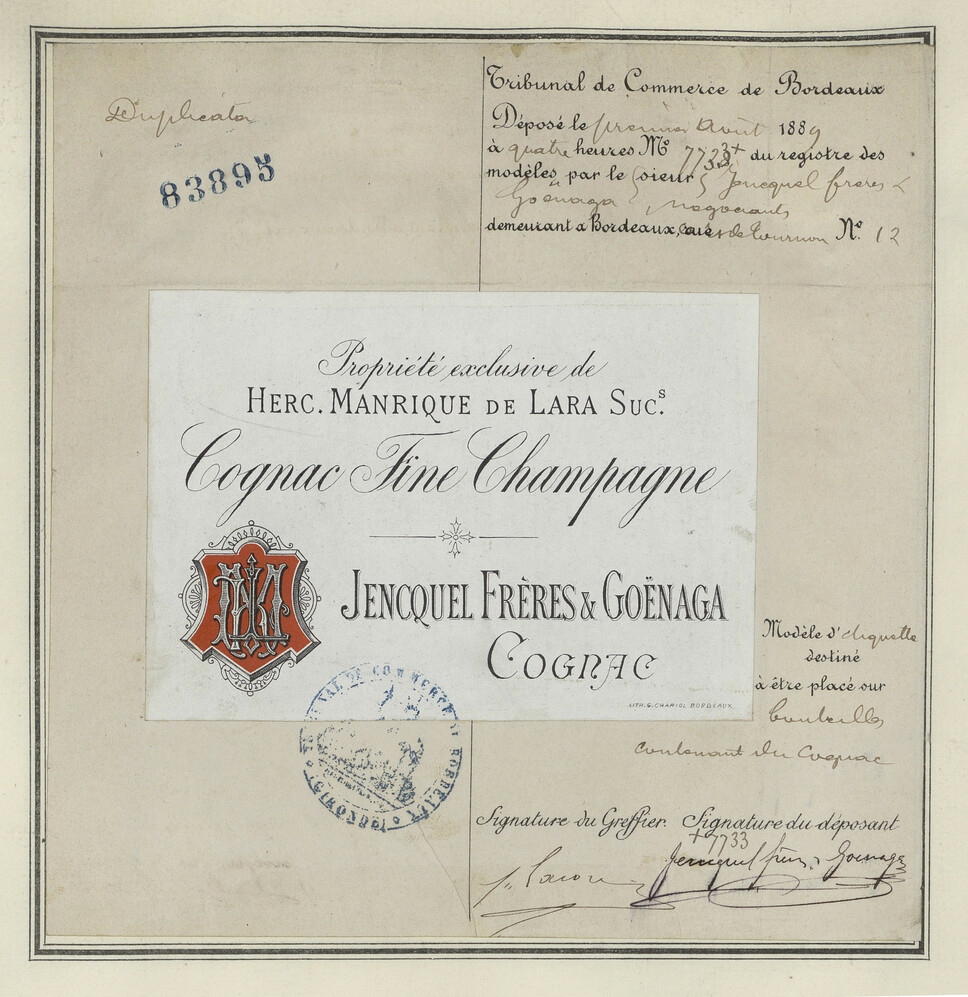 Duplicata
83895
Tribunal de Commerce de Bordeaux
Déposé le premier Août 1889
à quatre heures No 7733+ du registre des
modèles par le sieur Jencquel frères &
Goënaga, négociants
demeurant à Bordeaux, de Tournon No. 12
Propriété exclusive de
HERC. MANRIQUE DE LARA SUCS.
Cognac Fine Champagne
JENCQUEL FRÈRES & GOËNAGA
COGNAC
LITH. G. CHARIOL BORDEAUX
Modèle d'étiquette
destiné
à être placé sur
bouteilles
contenant du Cognac
TRIBUNAL DE COMMERCE DE BORDEAUX
(GIRONDE)
Signature du Greffier. Signature du déposant
+7733
Jencquel frères & Goënaga